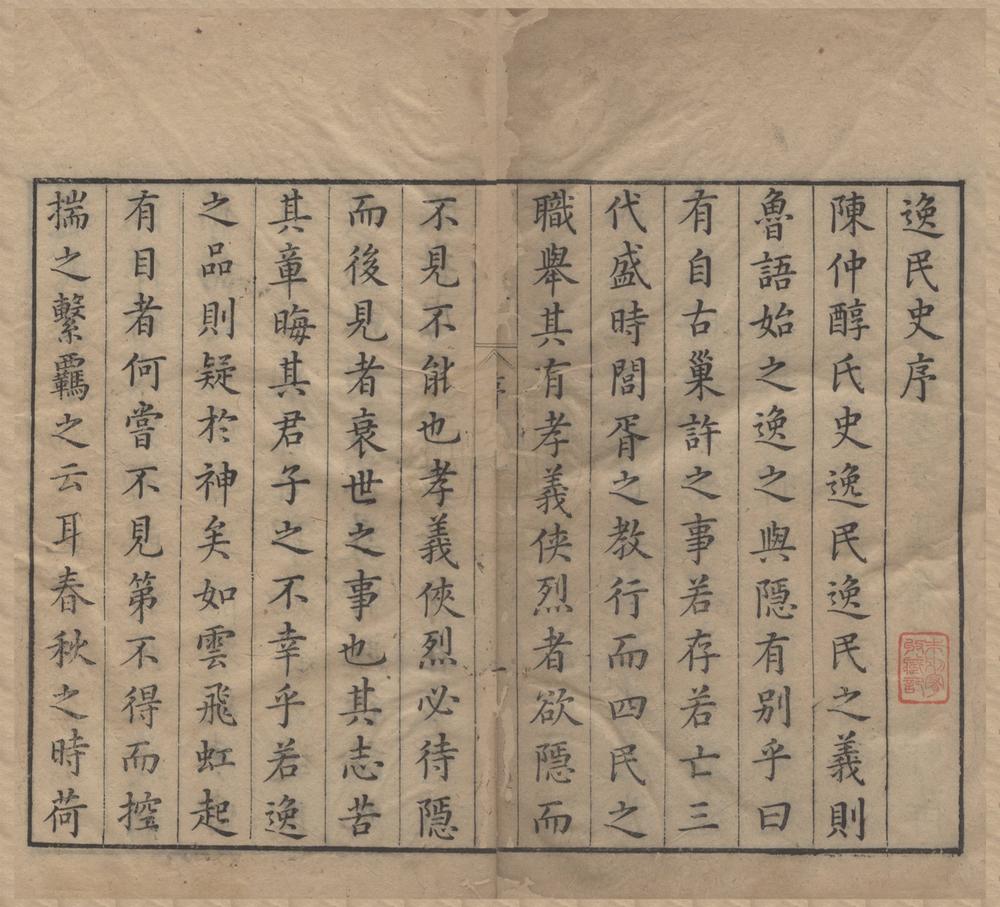 逸民史序
陳仲醇氏史逸民逸民之義則
魯語始之逸之與隱有别乎曰
有自古巢許之事若存若亡三
代盛時閭胥之教行而四民之
職舉其有孝義俠烈者欲隱而
序
一
不見不能也孝義俠烈必待隱
而後見者衰世之事也其志苦
其章晦其君子之不幸乎若逸
之品則疑於神矣如雲飛虹起
有目者何嘗不見第不得而控
揣之繫羈之云耳春秋之時荷